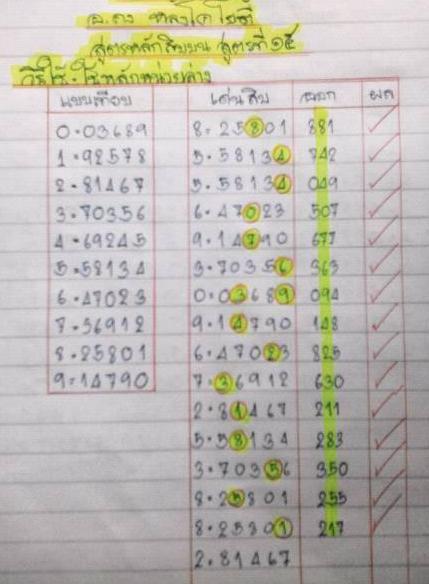 สูตรหลักสิบบน สูตรที่ ๑๕
วิธีใช้ : ใช้หลักหน่วยล่าง
แบบเทียบ เด่นสิบ ออก ผล
0=03689 8=25801 881
1=92578 5=58134 742
2=81467 5=58134 049
3=70356 6=47023 507
4=69245 9=14790 677
5=58134 3=70356 363
6=47023 0=03689 094
7=36912 9=14790 148
8=25801 6=47023 825
9=14790 7=36912 630
2=81467 211
5=58134 283
3=70356 350
8=25801 255
8=25801 217
2=81467